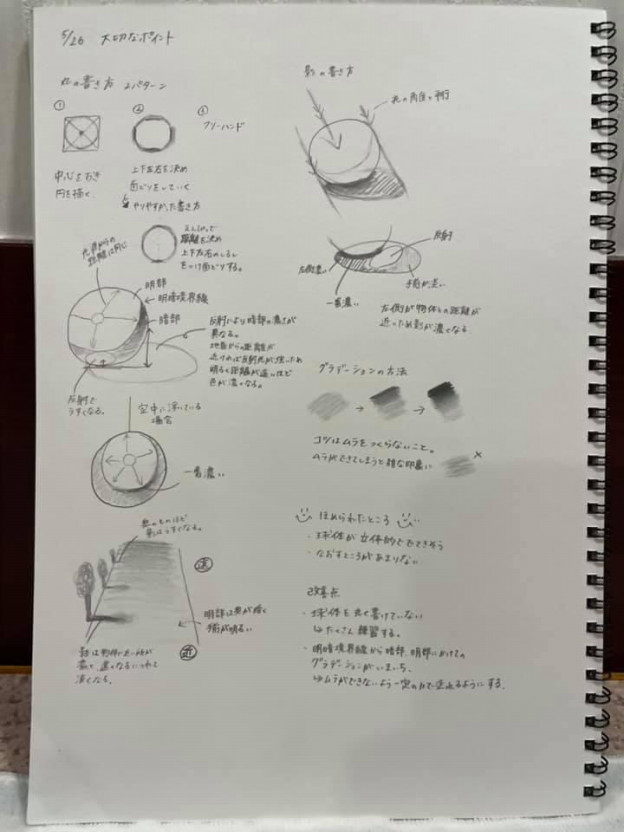 5/26 大切なポイント
丸の書き方 2パターン
①
②
③
フリーハンド
中心をおき
円を描く。
上下左右を決め
面どりをしていく
やりやすかった書き方
距離を決め
上下左右のしるし
をつけ面どりする。
光源からの
距離は同じ
明部
明暗境界線
暗部
反射により暗部の濃さが
異なる。
地面からの距離が
近ければ反射光が強いため
明るく距離が遠いほど
色が濃くなる。
反射で
うすくなる。
空中に浮いている
場合
一番濃い
奥のものほど
影はうすくなる。
遠
近
明部は奥が暗く
手前が明るい
影は物体に近い方が
濃く遠くなるにつれて
淡くなる。
影の書き方
丸の角度と平行
反射
左側濃い
一番濃い
手前が淡い
左側が物体との距離が
近いため影が濃くなる
グラデーションの方法
コツはムラをつくらないこと。
ムラができてしまうと雑な印象
×
ほめられたところ
・球体が立体的にできそう
・なおすところがあまりない
改善点
・球体を丸く書けていない
↳たくさん練習する。
・明暗境界線から暗部、明部にかけての
グラデーションがいまいち。
↳ムラができないよう一定の力で塗れるようにする。